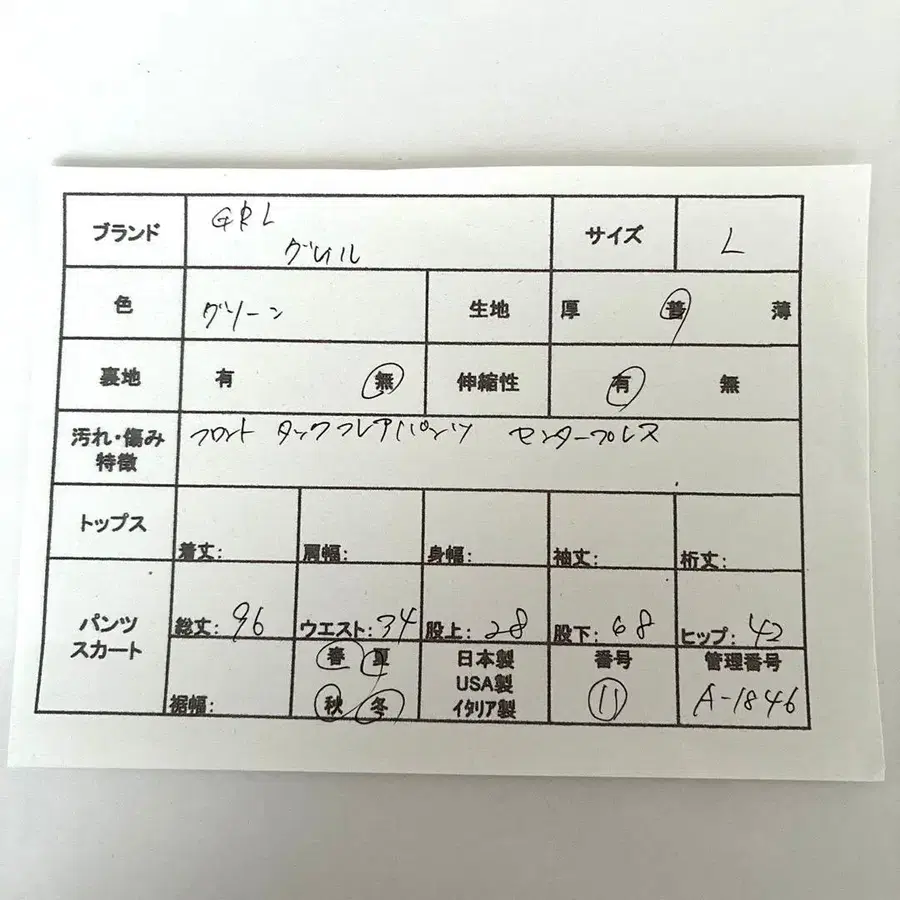 ブランド GRL サイズ L
グレイル
色 グリーン 生地 厚 普 薄
裏地 有 無 伸縮性 有 無
汚れ・傷み フロント タックフレアパンツ センタープレス
特徴
トップス 着丈: 肩幅: 身幅: 袖丈: 裄丈:
パンツ 総丈: 96 ウエスト: 34 股上: 28 股下: 68 ヒップ: 42
スカート 春 夏 日本製 番号 管理番号
USA製
裾幅: 秋 冬 イタリア製 11 A-1846